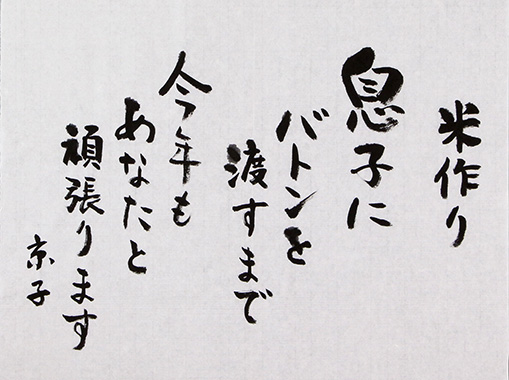 米作り
息子に
バトンを
渡すまで
今年も
あなたと
頑張ります
京子